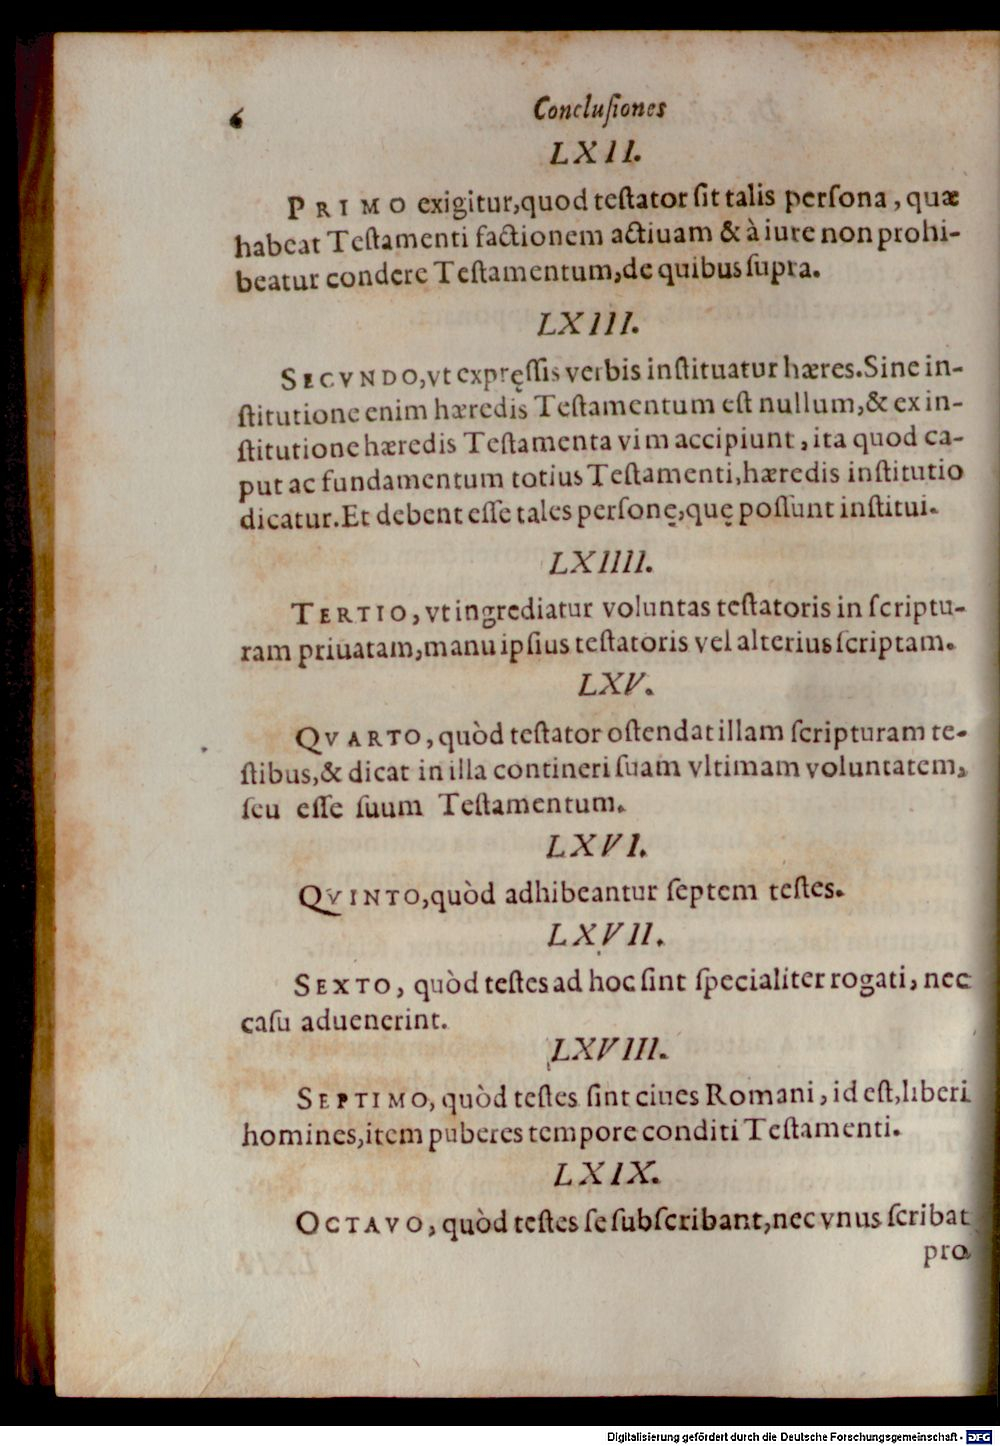 6
Concluſiones
LXII.
PRIMO exigitur,quod teſtator ſit talis perſona, quæ
habeat Teſtamenti factionem actiuam & à iure non prohi-
beatur condere Teſtamentum,de quibus ſupra.
LXIII.
SECVNDO,vt expręſſis verbis inſtituatur hæres.Sine in-
ſtitutione enim hæredis Teſtamentum eſt nullum,& ex in-
ſtitutione hæredis Teſtamenta vim accipiunt, ita quod ca-
put ac fundamentum totius Teſtamenti,hæredis inſtitutio
dicatur.Et debent eſſe tales perſonę,quę poſſunt inſtitui.
LXIIII.
TERTIO, vt ingrediatur voluntas teſtatoris in ſcriptu-
ram priuatam,manu ipſius teſtatoris vel alterius ſcriptam.
LXV.
QVARTO, quòd teſtator oſtendat illam ſcripturam te-
ſtibus,& dicat in illa contineri ſuam vltimam voluntatem,
ſeu eſſe ſuum Teſtamentum.
LXVI.
QVINTO,quòd adhibeantur ſeptem teſtes.
LXVII.
SEXTO, quòd teſtes ad hoc ſint ſpecialiter rogati, nec
caſu aduenerint.
LXVIII.
SEPTIMO, quòd teſtes ſint ciues Romani, id eſt,liberi
homines,item puberes tempore conditi Teſtamenti.
LXIX.
OCTAVO, quòd teſtes ſe ſubſcribant,nec vnus ſcribat
pro
Digitalisierung gefördert durch die Deutsche Forschungsgemeinschaft - DFG